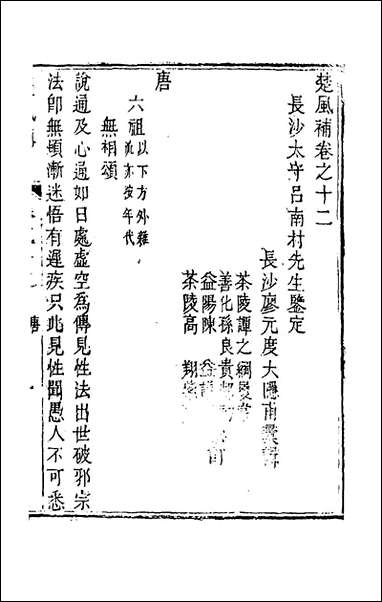 楚風補卷之十二
長沙太守呂南村先生鑒定
長沙廖元度大隱甫
茶陵譚之綱
善化孫良貴
益陽陳
茶陵高
唐
六祖以下方外雜流亦按年代
無相頌
說通及心通如日處虛空為傳見性法出世破邪宗
法卽無頓漸迷悟有遲疾只此見性門愚人不可悉
唐